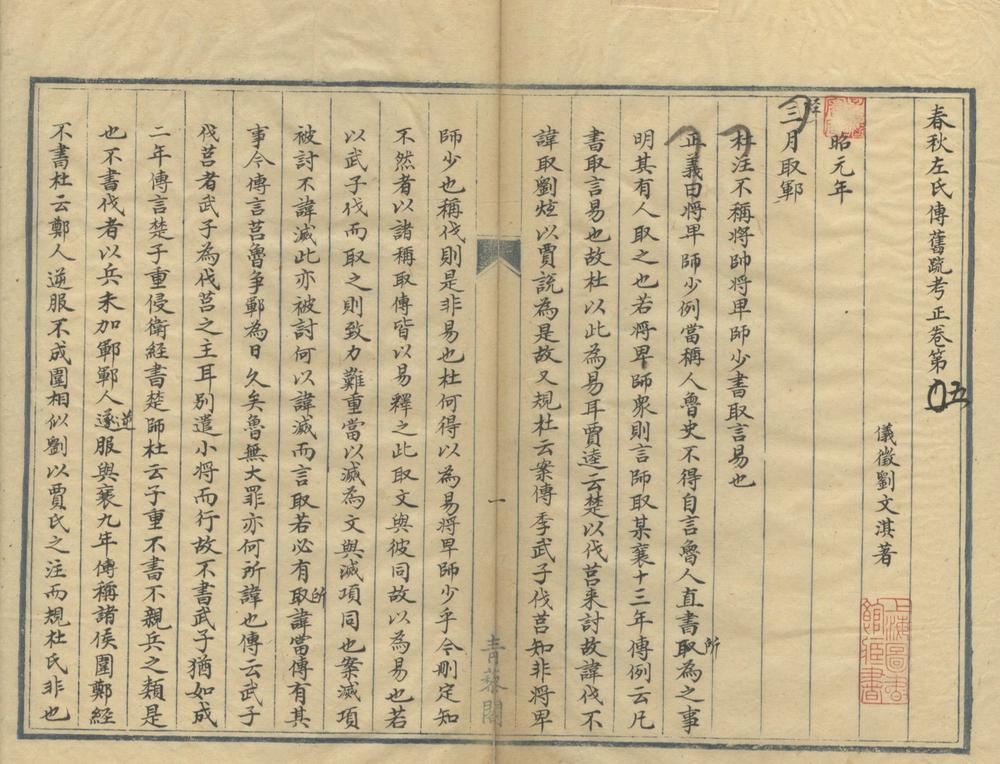 春秋左氏傳舊疏考正卷第五
儀徵劉文淇著
昭元年
三月取鄆
杜注不稱將帥將卑師少書取言易也
正義曰將卑師少例當稱人魯史不得自言魯人直書所取為之事
明其有人取之也若將卑師衆則言師取某襄十三年傳例云凡
書取言易也故杜以此為易耳賈逵云楚以伐莒來討故諱伐不
諱取劉炫以賈說為是故又規杜云案傳季武子伐莒知非將卑
師少也稱伐則是非易也杜何得以為易將卑師少乎今刪定知
不然者以諸稱取傳皆以易釋之此取文與彼同故以為易也若
以武子伐而取之則致力難重當以滅為文與滅項同也案滅項
被討不諱滅此亦被討何以諱滅而言取若必有所諱當傳有其
事今傳言莒魯爭鄆為日久矣魯無大罪亦何所諱也傳云武子
伐莒者武子為伐莒之主耳別遣小將而行故不書武子猶如成
二年傳言楚子重侵衛經書楚師杜云子重不書不親兵之類是
也不書伐者以兵未加鄆鄆人逆服與襄九年傳稱諸侯圍鄭經
不書杜云鄭人逆服不成圍相似劉以賈氏之注而規杜氏非也
一
青藜閣
上海圖書館藏書